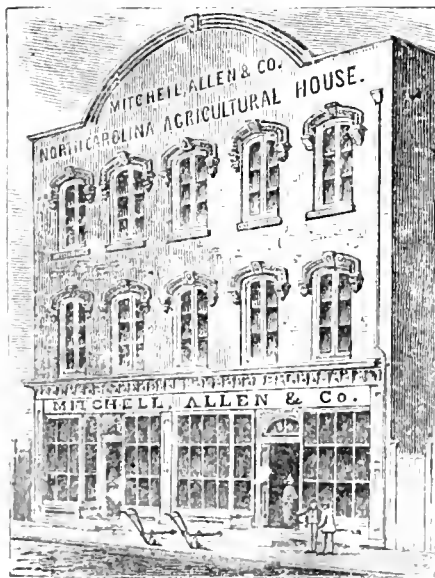 MITCHELL, ALLEN & CO.
NORTH CAROLINA AGRICULTURAL HOUSE.
MITCHELL, ALLEN & Co.